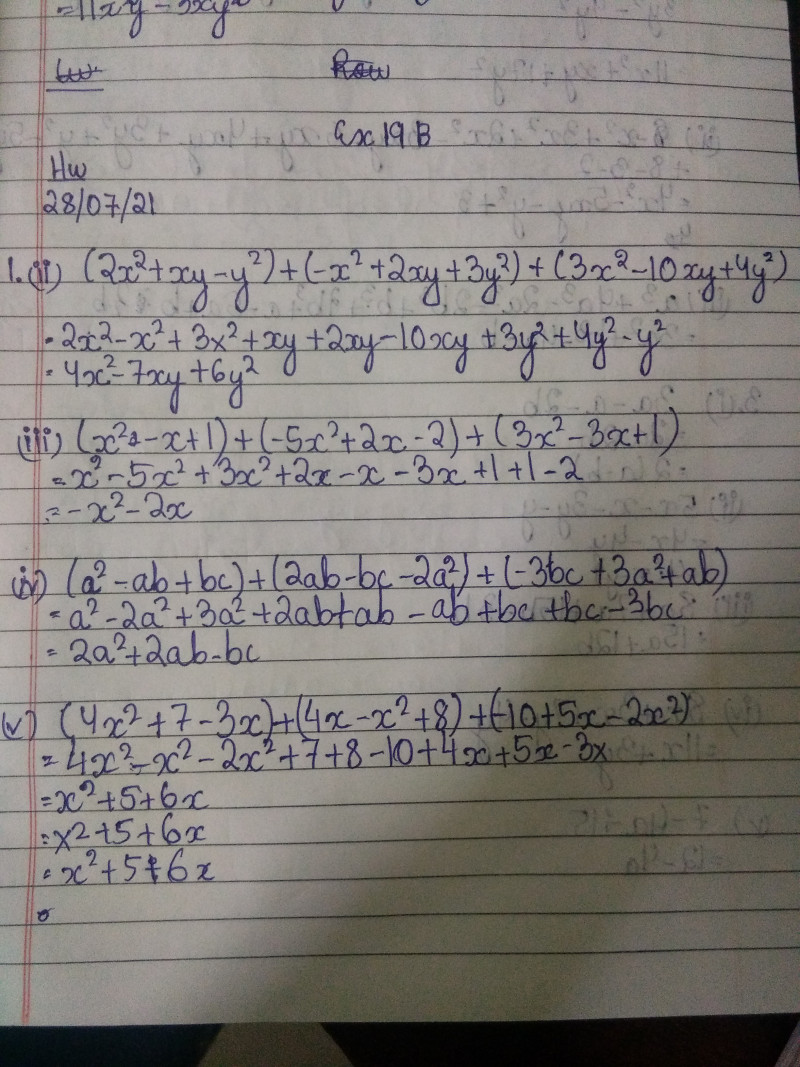 =11xy-33xy²
Hw
Ex 19 B
Hw
28/07/21
1.(ii) (2x²+xy-y²)+(-x²+2xy+3y²)+(3x²-10xy+4y²)
= 2x²-x²+3x²+xy+2xy-10xy+3y²+4y²-y²
= 4x²-7xy+6y²
(iii) (x²-x+1)+(-5x²+2x-2)+(3x²-3x+1)
= x²-5x²+3x²+2x-x-3x+1+1-2
= -x²-2x
(iv) (a²-ab+bc)+(2ab-bc-2a²)+(-3bc+3a²+ab)
= a²-2a²+3a²+2ab+ab-ab+bc+bc-3bc
= 2a²+2ab-bc
(v) (4x²+7-3x)+(4x-x²+8)+(-10+5x-2x²)
= 4x²-x²-2x²+7+8-10+4x+5x-3x
=x²+5+6x
=x2+5+6x
= x²+5+6x